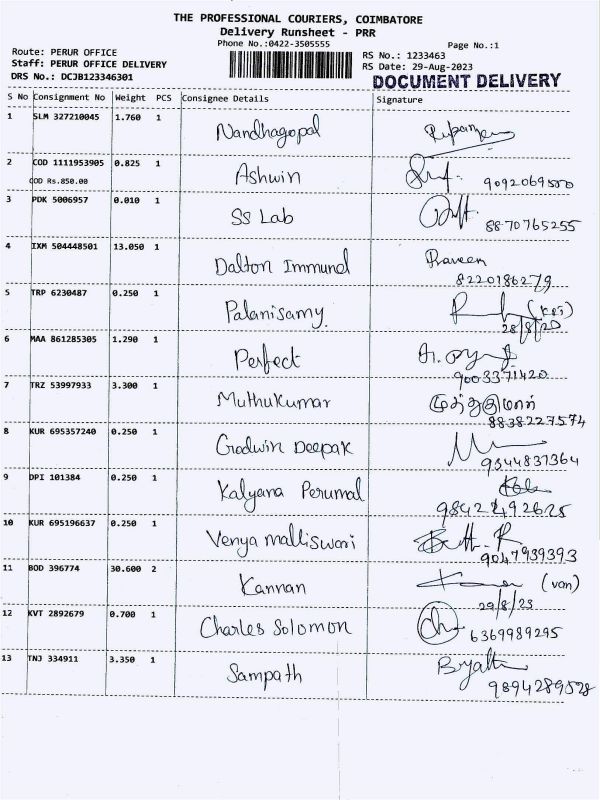 THE PROFESSIONAL COURIERS, COIMBATORE
Delivery Runsheet - PRR
Phone No.:0422-3505555
Page No.:1
Route: PERUR OFFICE
RS No.: 1233463
Staff: PERUR OFFICE DELIVERY
RS Date: 29-Aug-2023
DRS No.: DCJB123346301
DOCUMENT DELIVERY
S No Consignment No Weight PCS Consignee Details Signature
1 SLM 327210045 1.760 1 Nandhagopal
2 COD 1111953905 0.825 1 Ashwin
COD Rs.850.00 9092069500
3 PDK 5006957 0.010 1 SS Lab 8870765255
4 IXM 504448501 13.050 1 Dalton Immunal Praveen
8220186279
5 TRP 6230487 0.250 1 Palanisamy
28/8/20
6 MAA 861285305 1.290 1 Perfect
9003371420
7 TRZ 53997933 3.300 1 Muthukumar முத்துகுமார்
8838227574
8 KUR 695357240 0.250 1 Godwin Deepak
9344837364
9 DPI 101384 0.250 1 Kalyana Perumal
10 KUR 695196637 0.250 1 Venya malliswari
9047939393
11 BOD 396774 30.600 2 Kannan (van)
29/8/23
12 KVT 2892679 0.700 1 Charles Solomon
6369989295
13 TNJ 334911 3.350 1 Sampath
9894289528